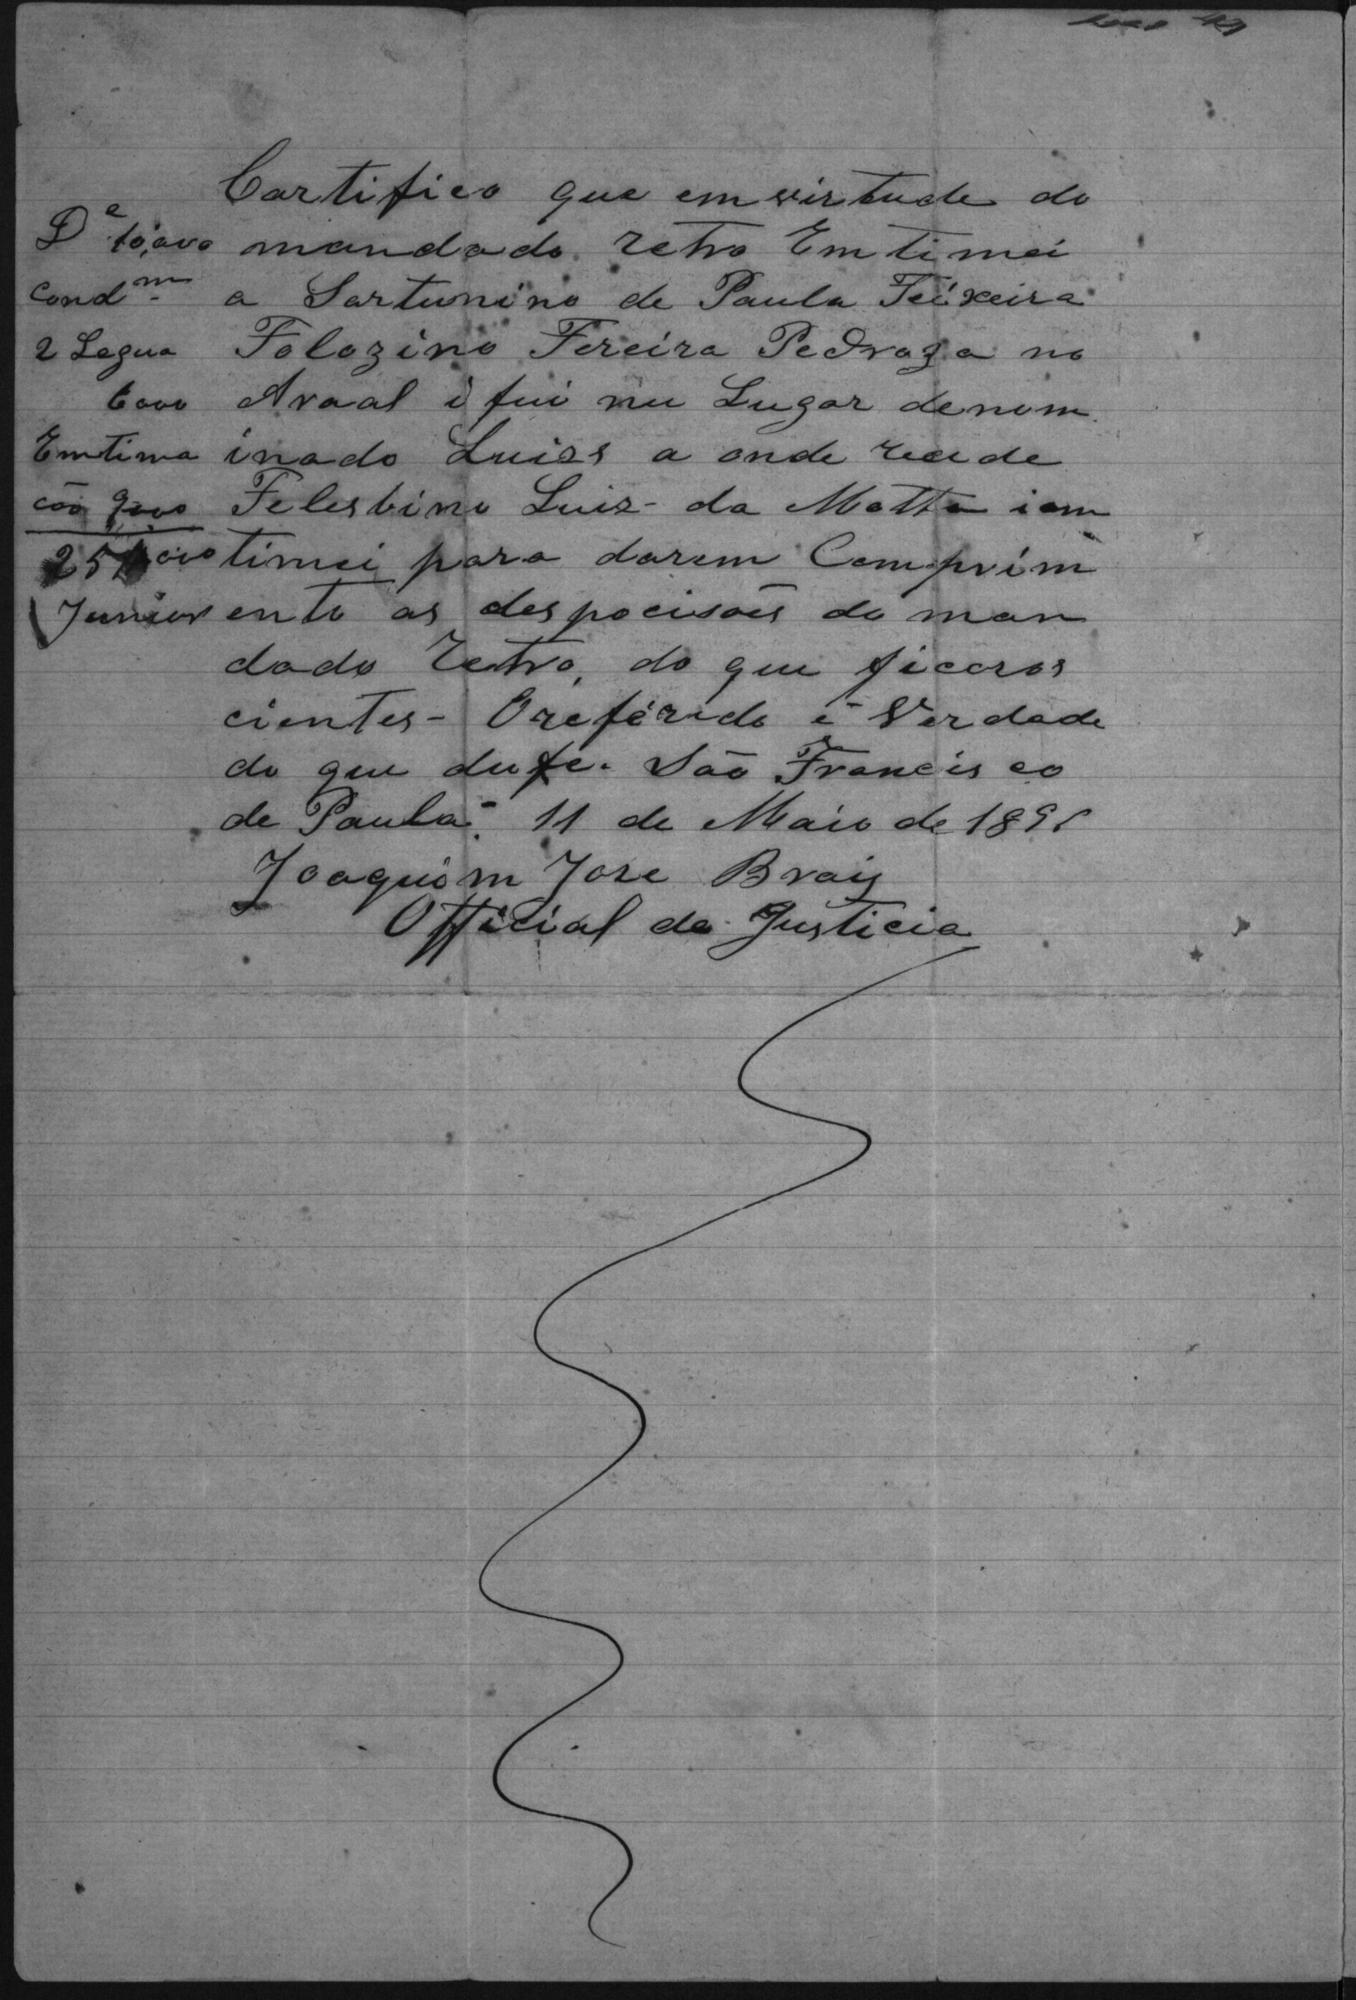 Certifico que em virtude do
mandado retro Emtimei
a Sartunino de Paula Teixeira
Folozino Fereira Pedroza no
Araal i fui nu Lugar denom
inado Luizs a onde recide
Felesbino Luiz da Motta iem
timei para darem Comprim
ento as despocisoẽs do man
dado Retro, do que ficaros
cientes - Oreférido é Verdade
do que dufe. São Francisco
de Paula. 11 de Maio de 189
Joaquim Jose Braiz
Official de Justicia
D.e 10,000
Cond.m
2 Legua
6000
Emtima
cão 9000
25,000
Junior